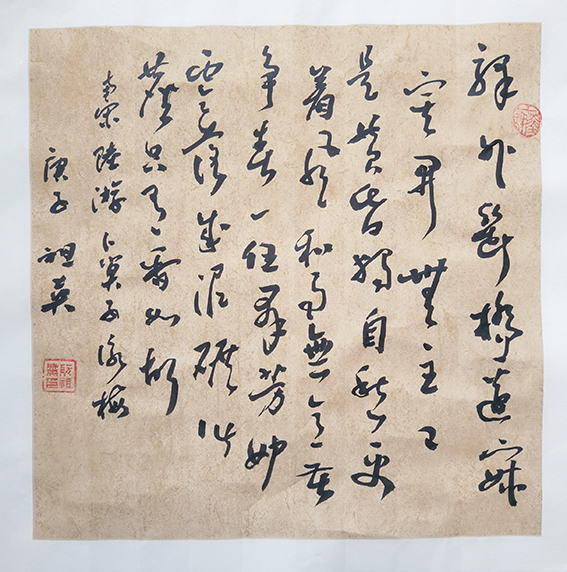 驛外斷橋邊寂
寞開無主已
是黄昏獨自愁更
着风和雨無意苦
争春一任群芳妒
零落成泥碾作
塵只有香如故
南宋陸游卜算子詠梅
庚子 祖英